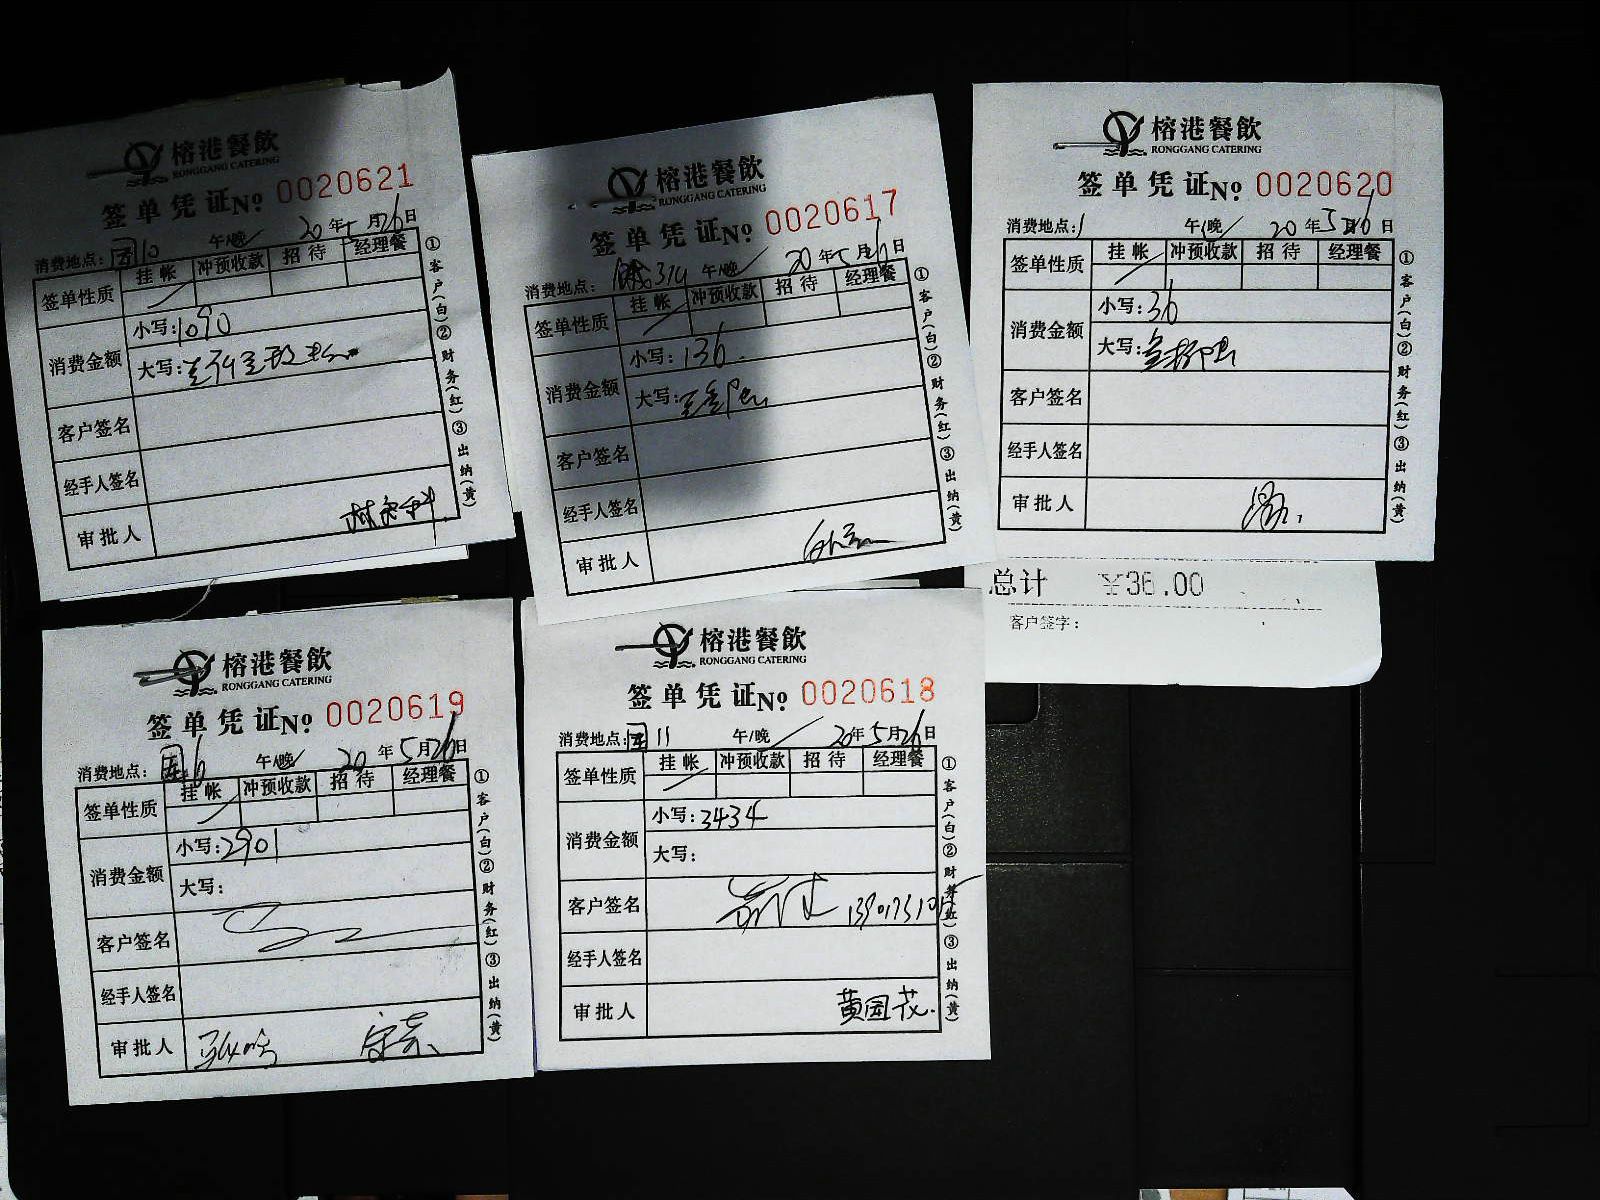 榕港餐飲
RONGGANG CATERING
签单凭证№ 0020621
消费地点: 10 午/晚 20年5月26日
签单性质 挂帐 冲预收款 招待 经理餐
消费金额 小写:1090
大写:
客户签名
经手人签名
审批人
①客户(白)②财务(红)③出纳(黄)
榕港餐飲
RONGGANG CATERING
签单凭证№ 0020617
消费地点: 314 午/晚 20年5月26日
签单性质 挂帐 冲预收款 招待 经理餐
消费金额 小写:136.
大写:
客户签名
经手人签名
审批人
①客户(白)②财务(红)③出纳(黄)
榕港餐飲
RONGGANG CATERING
签单凭证№ 0020620
消费地点: 午/晚 20年5月26日
签单性质 挂帐 冲预收款 招待 经理餐
消费金额 小写:36
大写:
客户签名
经手人签名
审批人
①客户(白)②财务(红)③出纳(黄)
总计 ¥36.00
客户签字:
榕港餐飲
RONGGANG CATERING
签单凭证№ 0020619
消费地点: 6 午/晚 20年5月26日
签单性质 挂帐 冲预收款 招待 经理餐
消费金额 小写:2901
大写:
客户签名
经手人签名
审批人
①客户(白)②财务(红)③出纳(黄)
榕港餐飲
RONGGANG CATERING
签单凭证№ 0020618
消费地点: 11 午/晚 20年5月26日
签单性质 挂帐 冲预收款 招待 经理餐
消费金额 小写:3434
大写:
客户签名
经手人签名
审批人 黄园花.
①客户(白)②财务(红)③出纳(黄)